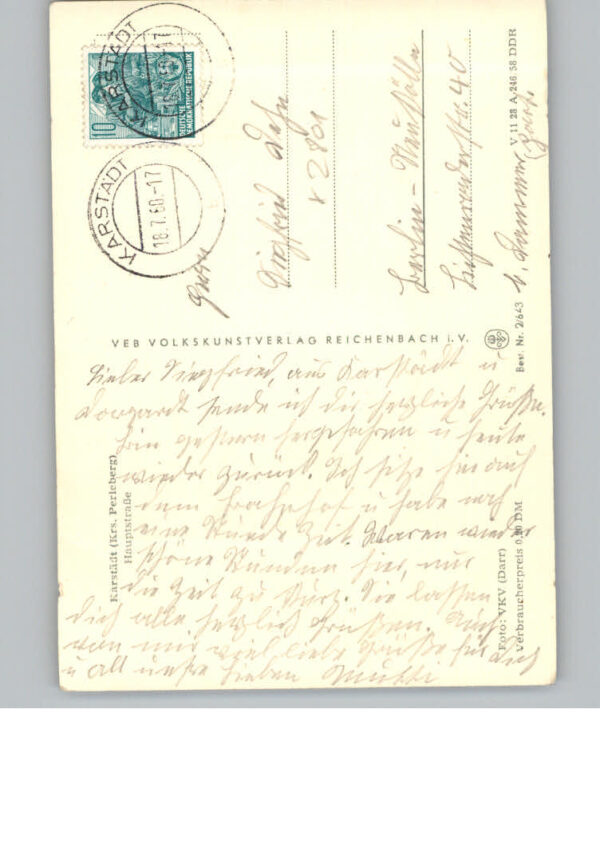 KARSTÄDT
18.7.60-17
10
DEUTSCHE
DEMOKRATISCHE REPUBLIK
KARSTÄDT
18.7.60-17
Herrn
Siegfried
Berlin - Neukölln
40
b.
V 11 28 A 246 58 DDR
VEB VOLKSKUNSTVERLAG REICHENBACH i. V.
Best. Nr. 2/643
Lieber Siegfried, aus Karstädt u
sende ich dir herzliche Grüße.
Bin gestern hergefahren u heute
wieder zurück. Ich sitze hier auf
dem Bahnhof u habe noch
eine Stunde Zeit. Waren wieder
schöne Stunden hier, nur
die Zeit zu kurz. Sie lassen
dich alle herzlich grüßen. Auch
von mir viel liebe Grüße für Dich
u all unsre Lieben Mutti
Karstädt (Krs. Perleberg)
Hauptstraße
Foto: VKV (Darr)
Verbraucherpreis 0,20 DM